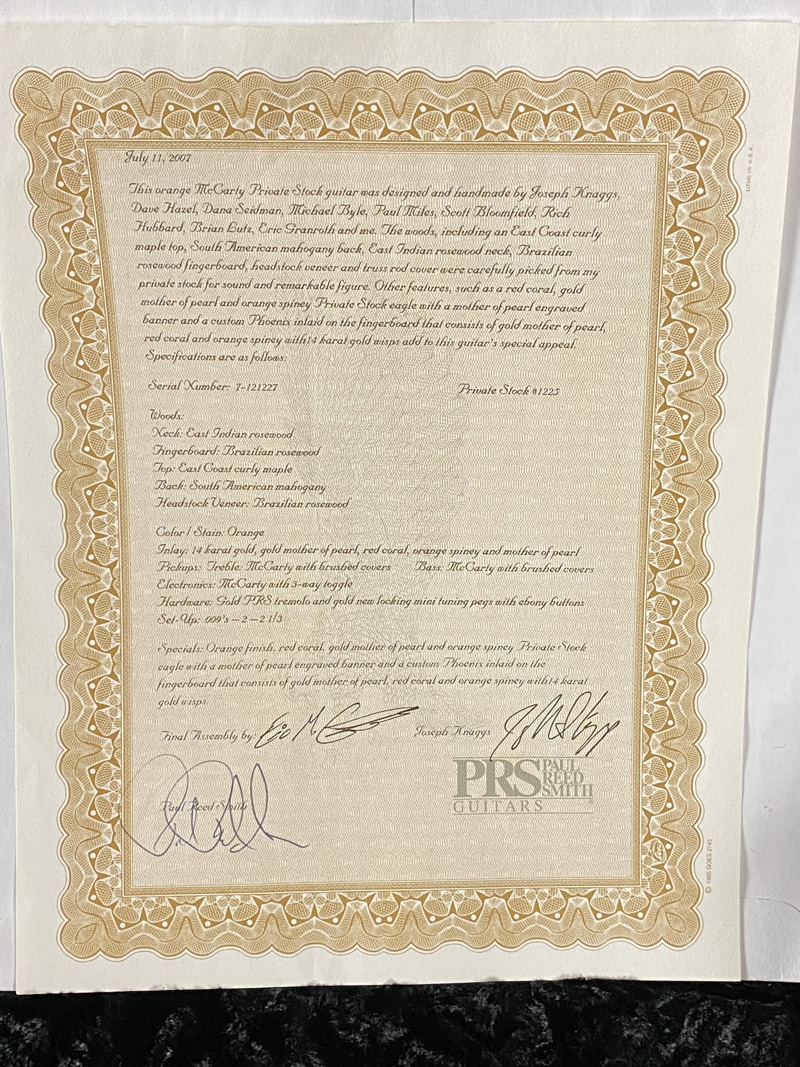 July 11, 2007
This orange McCarty Private Stock guitar was designed and handmade by Joseph Knaggs,
Dave Hazel, Dana Seidman, Michael Byle, Paul Miles, Scott Bloomfield, Rich
Hubbard, Brian Lutz, Eric Granroth and me. The woods, including an East Coast curly
maple top, South American mahogany back, East Indian rosewood neck, Brazilian
rosewood fingerboard, headstock veneer and truss rod cover were carefully picked from my
private stock for sound and remarkable figure. Other features, such as a red coral, gold
mother of pearl and orange spiney Private Stock eagle with a mother of pearl engraved
banner and a custom Phoenix inlaid on the fingerboard that consists of gold mother of pearl,
red coral and orange spiney with14 karat gold wisps add to this guitar's special appeal.
Specifications are as follows:
Serial Number: 7-121227 Private Stock #1225
Woods:
Neck: East Indian rosewood
Fingerboard: Brazilian rosewood
Top: East Coast curly maple
Back: South American mahogany
Headstock Veneer: Brazilian rosewood
Color / Stain: Orange
Inlay: 14 karat gold, gold mother of pearl, red coral, orange spiney and mother of pearl
Pickups: Treble: McCarty with brushed covers Bass: McCarty with brushed covers
Electronics: McCarty with 3-way toggle
Hardware: Gold PRS tremolo and gold new locking mini tuning pegs with ebony buttons
Set-Up: 009's – 2 – 2 1/3
Specials: Orange finish, red coral, gold mother of pearl and orange spiney Private Stock
eagle with a mother of pearl engraved banner and a custom Phoenix inlaid on the
fingerboard that consists of gold mother of pearl, red coral and orange spiney with14 karat
gold wisps
Final Assembly by: Joseph Knaggs
PRS PAUL REED SMITH
GUITARS ®
Paul Reed Smith
LITHO IN U.S.A.
© 1995 GOES 2745